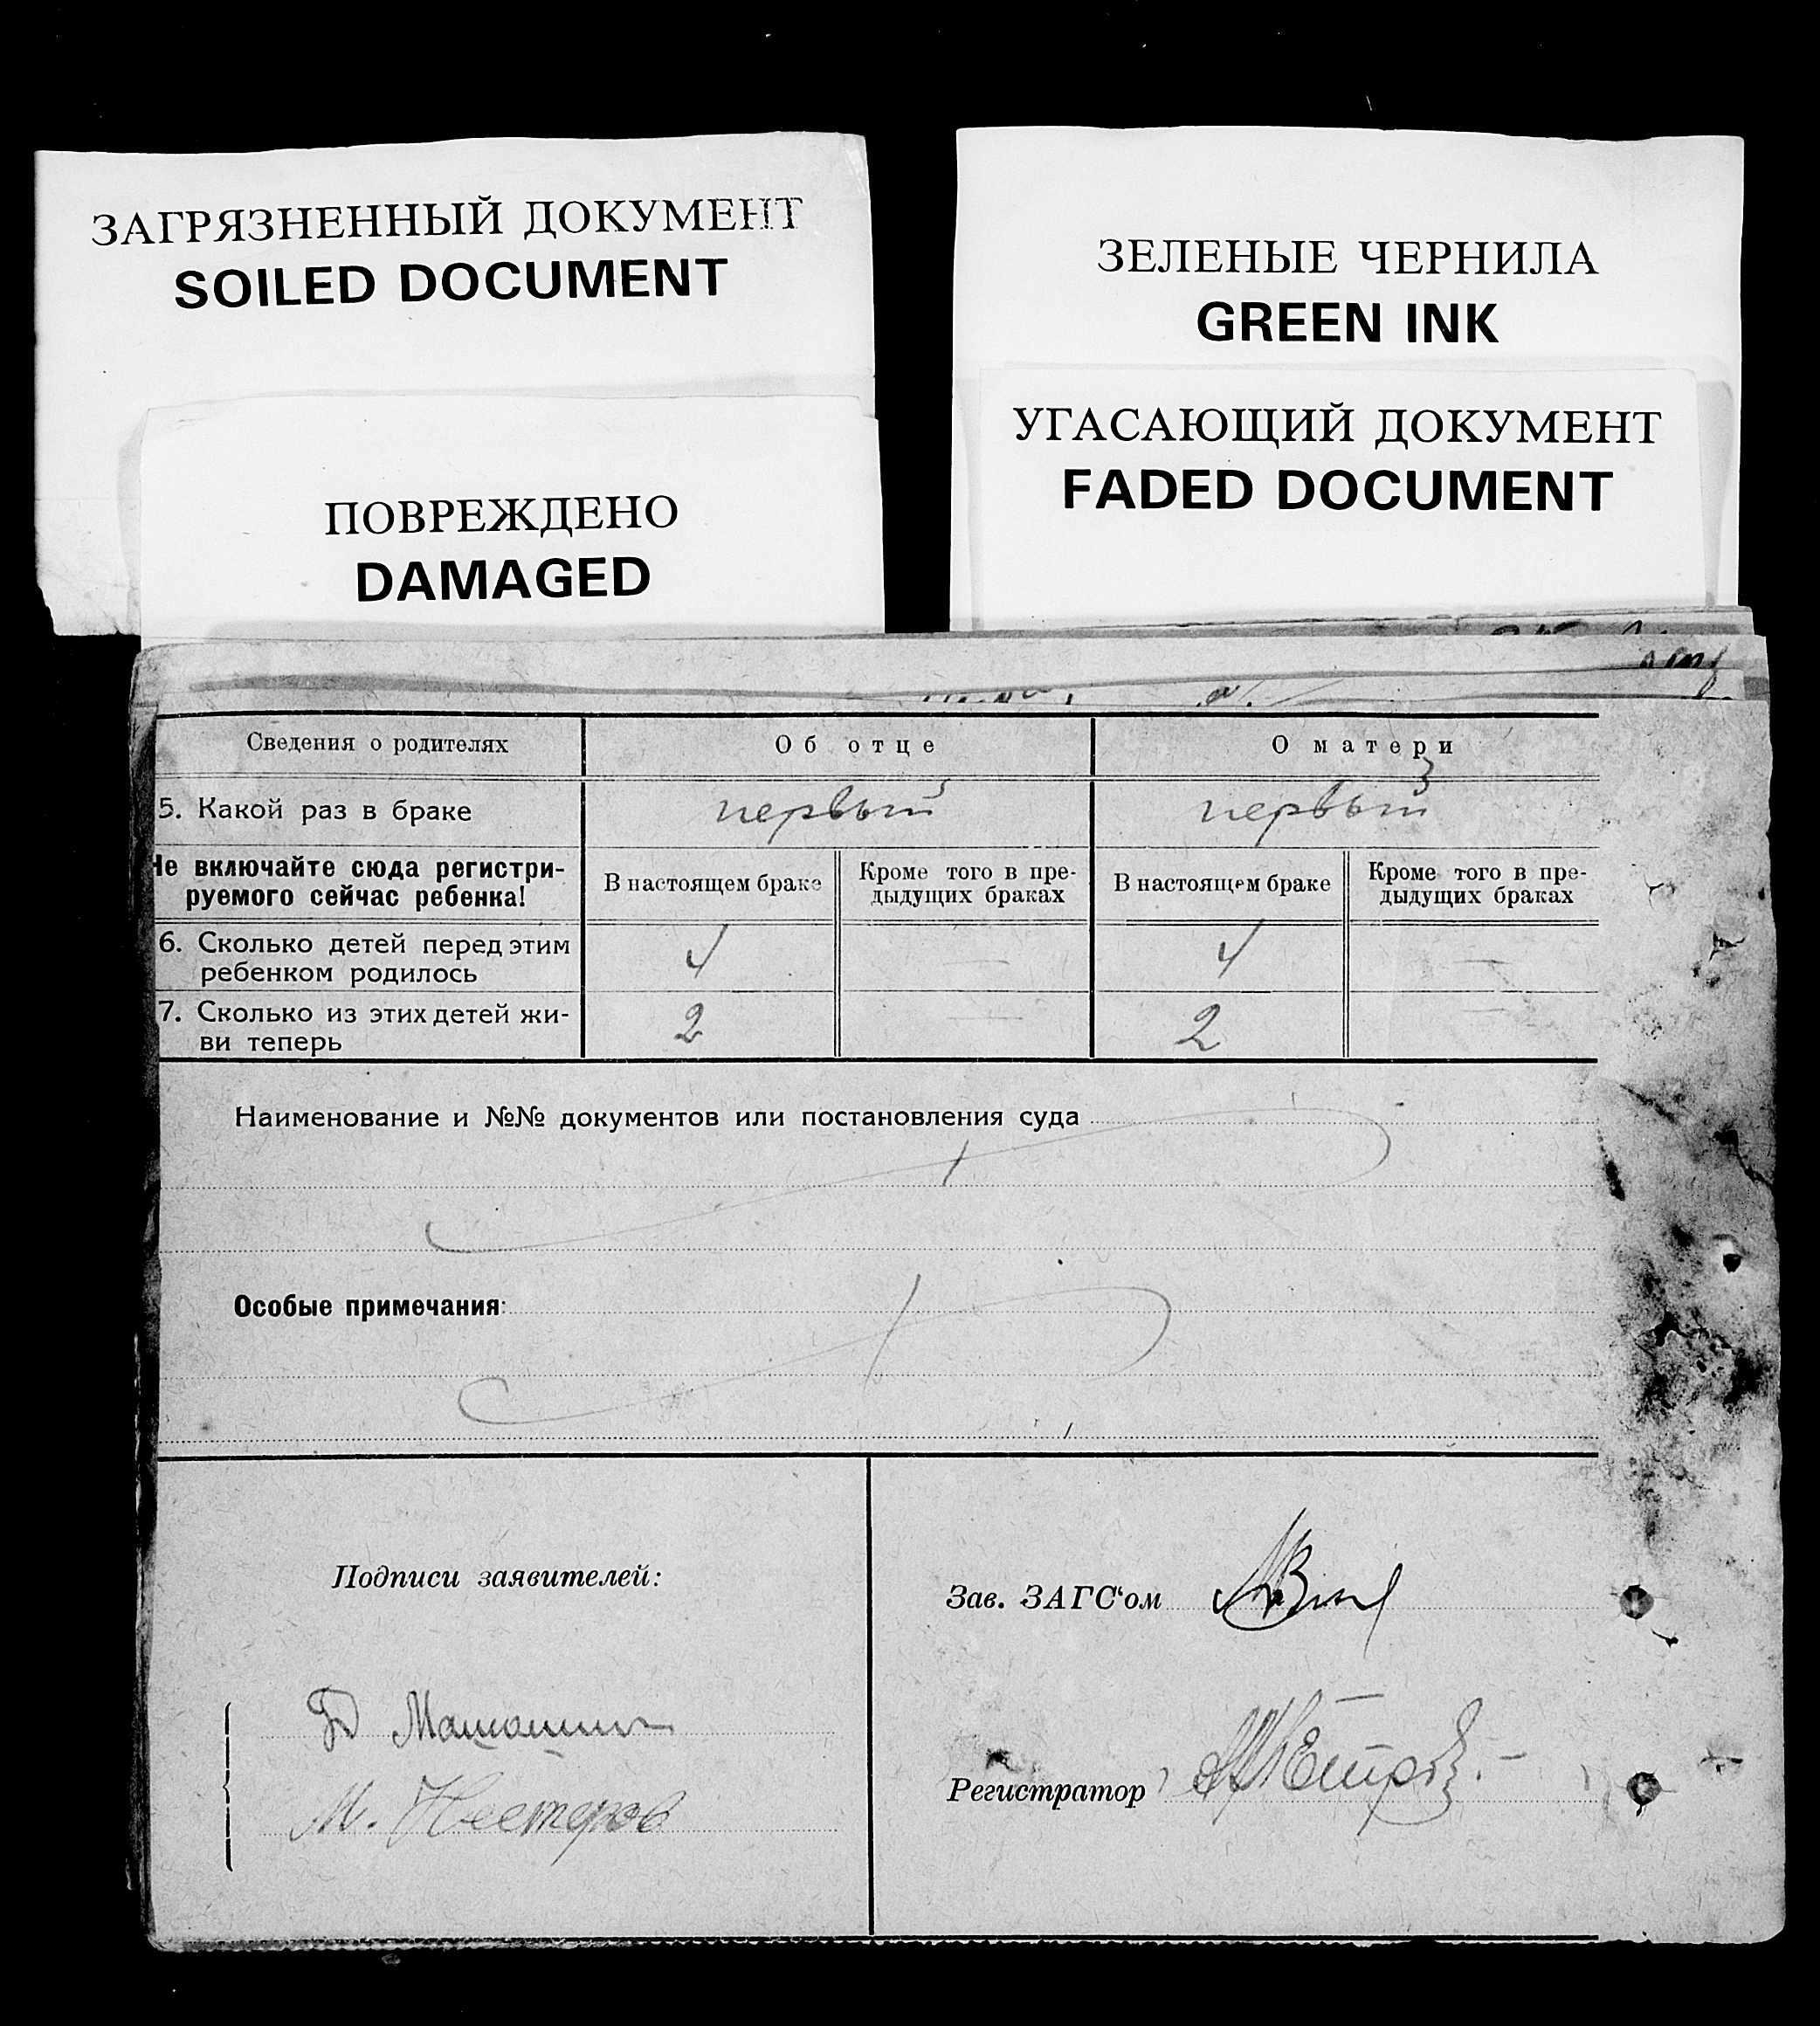 ЗАГРЯЗНЕННЫЙ ДОКУМЕНТ
SOILED DOCUMENT
ПОВРЕЖДЕНО
DAMAGED
ЗЕЛЕНЫЕ ЧЕРНИЛА
GREEN INK
УГАСАЮЩИЙ ДОКУМЕНТ
FADED DOCUMENT
Сведения о родителях Об отце О матери
5. Какой раз в браке первый первый
Не включайте сюда регистри-
руемого сейчас ребенка!
В настоящем браке
Кроме того в пре-
дыдущих браках
В настоящем браке
Кроме того в пре-
дыдущих браках
6. Сколько детей перед этим
ребенком родилось 4 — 4 —
7. Сколько из этих детей жи-
ви теперь 2 — 2 —
Наименование и №№ документов или постановления суда
Особые примечания:
Подписи заявителей:
М. Нестеров
Зав. ЗАГС‘ом
Регистратор